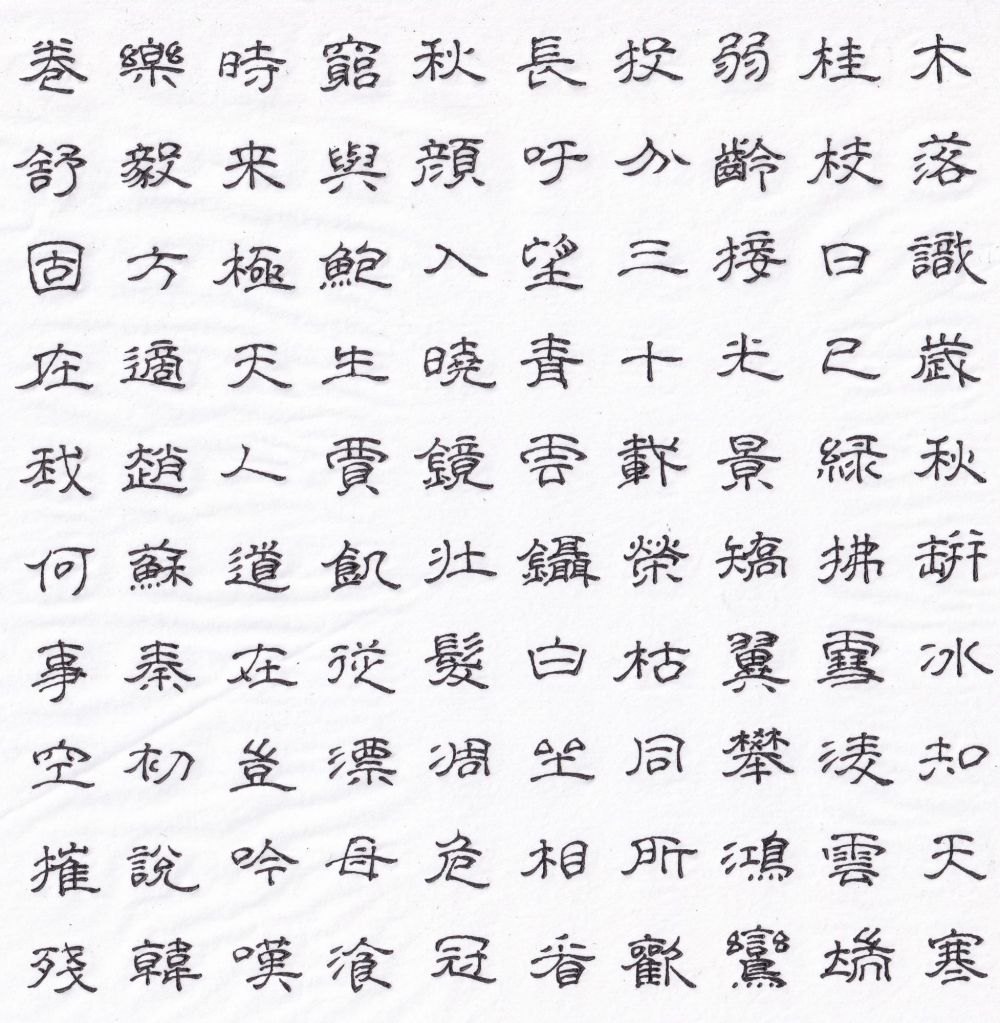 木落識歳秋缾冰知天寒
桂枝日已緑拂雪淩雲端
弱齡接光景矯翼攀鴻鸞
投分三十載榮枯同所歡
長吁望青雲鑷白坐相看
秋顔入暁鏡壯髪凋危冠
窮與鮑生賈飢從漂母湌
時来極天人道在豈吟嘆
樂毅方適趙蘇秦初説韓
卷舒固在我何事空摧殘